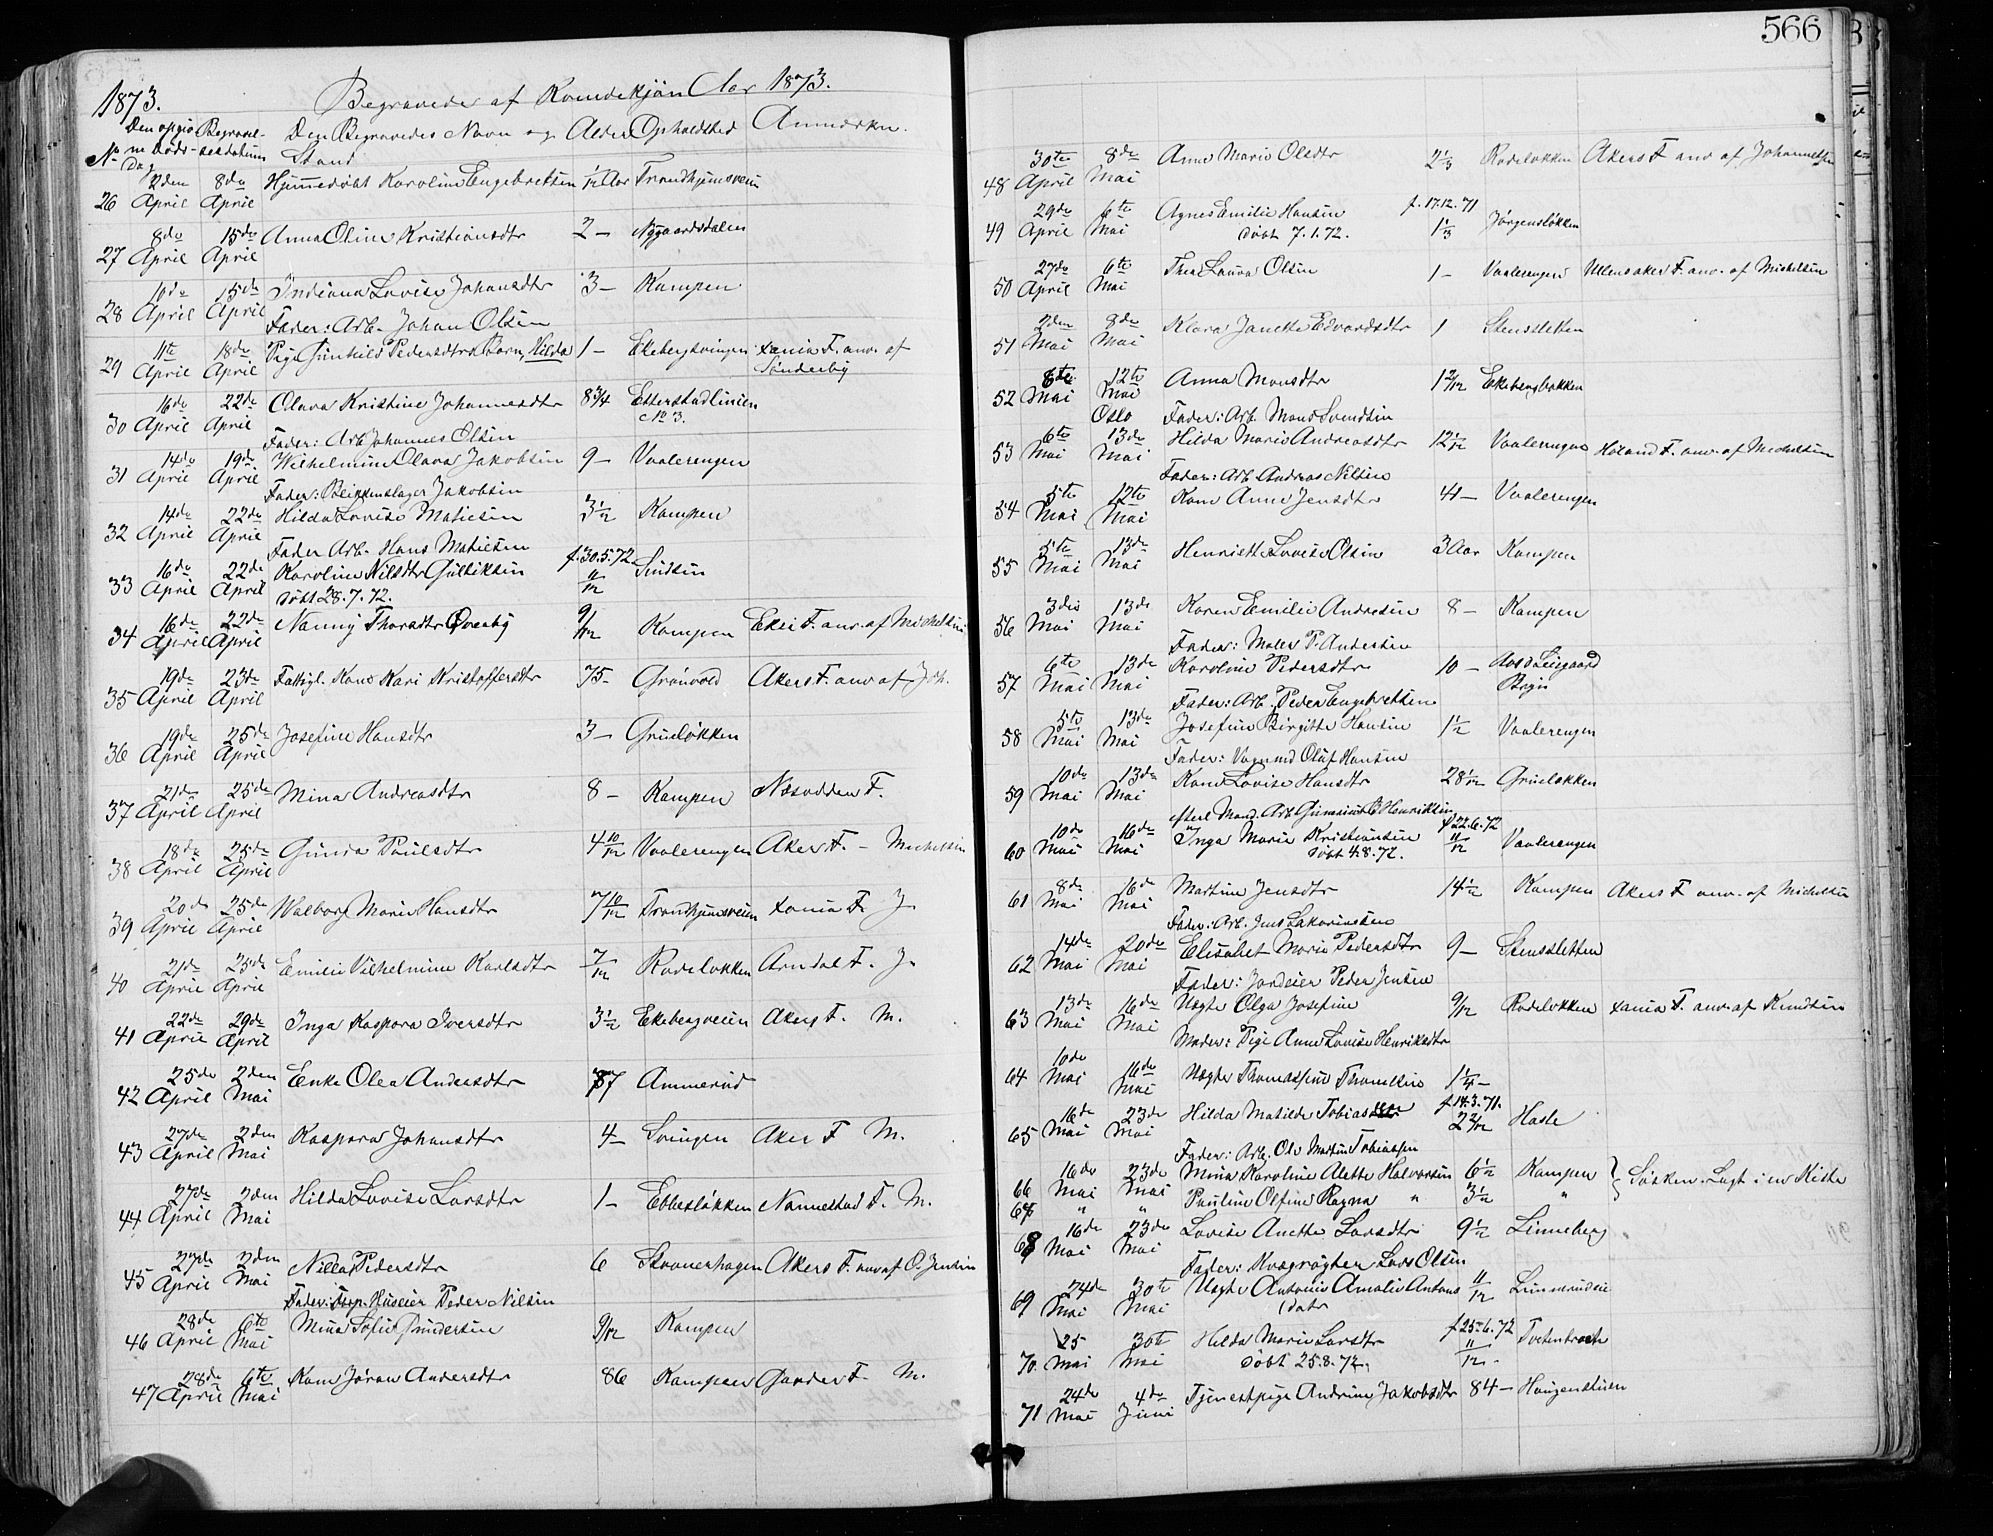 566
1873. Begravede af Kvindekjøn Aar 1873.
No Den opgivne Døds-Dag Begravelsesdatum Den Begravedes Navn og Stand Alder Opholdsted Anmærkn.
26 2den April 8de April Hjemmedøbt Karoline Engebretsen 1/12 Aar Trondhjemsveien
27 8de April 15de April Anna Oline Kristiansdtr 2 — Nygaardsdalen
28 10de April 15de April Indiana Lovise Johansdtr 3 — Kampen
Fader: Arb. Johan Olsen
29 11te April 18de April Pige Gunhild Pedersdtrs Barn, Hilda 1 — Ekebergsvingen Xania F. anv. af Sønderby
30 16de April 22de April Olava Kristine Johannesdtr 8 3/4 Etterstadlinien No 3.
Fader: Arb. Johannes Olsen
31 14de April 19de April Wilhelmine Olava Jakobsen 9 — Vaalerengen
Fader: Blikkenslager Jakobsen
32 14de April 22de April Hilda Lovise Matisen 3 1/2 Kampen
Fader Arb. Hans Matiesen
33 16de April 22de April Karoline Nilsdtr Gulliksen f. 30.5.72. 11/12 Sinsen
døbt 28.7.72.
34 16de April 22de April Nanny Thorsdtr Øveby 9/12 Kampen F. anv. af Michelsen
35 19de April 23de April Fattigl. Kone Kari Kristoffersdtr 75 — Grønvold Akers F. anv af Joh.
36 19de April 25de April Josefine Hansdtr 3 — Grueløkken
37 21de April 25de April Mina Andreasdtr 8 — Kampen Næsodden F.
38 18de April 25de April Gunda Paulsdtr 4 10/12 Vaalerengen Akers F. — Michelsen
39 20de April 25de April Walborg Marie Hansdtr 7 10/12 Trondhjemsveien Xania F. J.
40 21de April 25de April Emilie Vilhelmine Karlsdtr 7/12 Rodeløkken Arndal F. J.
41 22de April 29de April Inga Kaspara Iversdtr 3 1/2 Ekebergveien Akers F. M.
42 25de April 2den Mai Enke Olea Andersdtr 87 Ammerud
43 27de April 2den Mai Kaspara Johansdtr 4 — Svingen Aker F M.
44 27de April 2den Mai Hilda Lovise Larsdtr 1 — Ebbesløkken Nannestad F. M.
45 27de April 2den Mai Nilla Pedersdtr 6 Stovnerhagen Akers F. anv af O. Jensen
Fader: Huseier Peder Nilsen
46 28de April 6te Mai Mina Sofie Gundersen 9/12 Kampen
47 28de April 6te Mai Kone Jøran Andersdtr 86 Kampen Gander F. M.
48 30te April 8de Mai Anne Marie Olsdtr 2 1/3 Rodeløkken Akers F anv af Johannesen
49 29de April 6te Mai Agnes Emilie Hansen f. 17.12.71 1 1/3 Jørgensløkken
døbt 7.1.72.
50 27de April 6te Mai Thea Laura Olsen 1 — Vaalerengen Ullensaker F. anv. af Michelsen
51 2den Mai 8de Mai Klara Janette Edvardsdtr 1 Stensletten
52 6te Mai 12te Mai Oslo Anna Monsdtr 1 2/12 Ekebergbakken
Fader: Arb. Mons Svendsen
53 6te Mai 13de Mai Hilda Marie Andreasdtr 12 1/2 Vaalerengen Høland F. anv. af Michelsen
Fader: Arb. Andreas Nilsen
54 5te Mai 12te Mai Kone Anne Jensdtr 41 — Vaalerengen
55 5te Mai 13de Mai Henriette Lovise Olsen 3 Aar Kampen
56 3die Mai 13de Mai Karen Emilie Andresen 8 — Kampen
Fader: Maler P. Andersen
57 6te Mai 13de Mai Karoline Pedersdtr 10 —
Fader: Arb. Peder Engebretsen
58 5te Mai 13de Mai Josefine Birgitte Hansen 1 1/2 Vaalerengen
Fader: Vognmd Oluf Hansen
59 10de Mai 13de Mai Kone Lovise Hansdtr 28 1/12 Grueløkken
efterl. Mand. Arb. Henriksen
60 10de Mai 16de Mai Inga Marie Kristiansen f 22.6.72 11/12 Vaalerengen
døbt 4.8.72.
61 8de Mai 16de Mai Martine Jensdtr 14 1/2 Kampen Akers F anv. af Michelsen
Fader: Arb. Jens Sakariassen
62 14de Mai 20de Mai Elisabet Marie Pedersdtr 9 — Stensletten
Fader: Jordeier Peder Jensen
63 13de Mai 16de Mai Uægte Olga Josefine 9/12 Rodeløkken Xania F. anv. af Knudsen
Moder: Pige Anne Lovise Henriksdtr
64 10de Mai 16de Mai Uægte Thomasine Thomesen 1 1/4 —
65 16de Mai 23de Mai Hilda Matilde Tobiassen f 14.3.71. 2 2/12 Hasle
Fader: Arb. Ole Martin Tobiassen
66 16de Mai 23de Mai Mina Karoline Alette Halvorsen 6 1/2 Kampen } Søsken. Lagt i en Kiste
67 " " Pauline Olfine Ragna " 3 1/2 "
68 16de Mai 23de Mai Lovise Anette Larsdtr 9 1/2 Linneberg
Fader: Kvægrøgter Lars Olsen
69 24de Mai 30te Mai Uægte Antonie Amalie Antonsdatr 11/12
70 25 Mai 30te Mai Hilda Marie Larsdtr f 25.6.72 11/12 —
døbt 25.8.72.
71 24de Mai 4de Juni Tjenestpige Andrine Jakobsdtr 84 — Haugenstuen